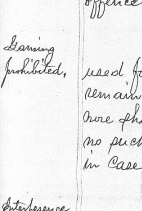 offence
Gaming
prohibited.
used fo
remain
nore pha
no such
in case
Interference